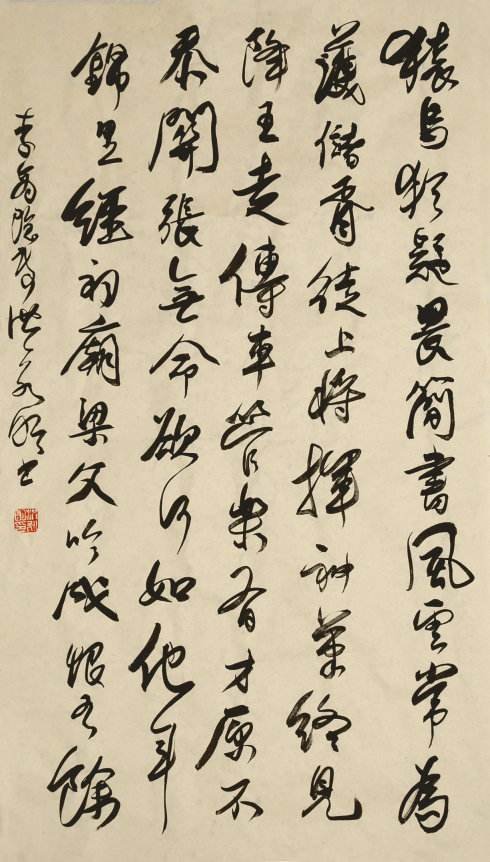 猿鳥猶疑畏簡書風雲常為
護儲胥徒上將揮神筆終見
降王走傳車管樂有才原不
忝關張無命欲何如他年
錦里經祠廟梁父吟成恨有餘
李商隱詩洪書